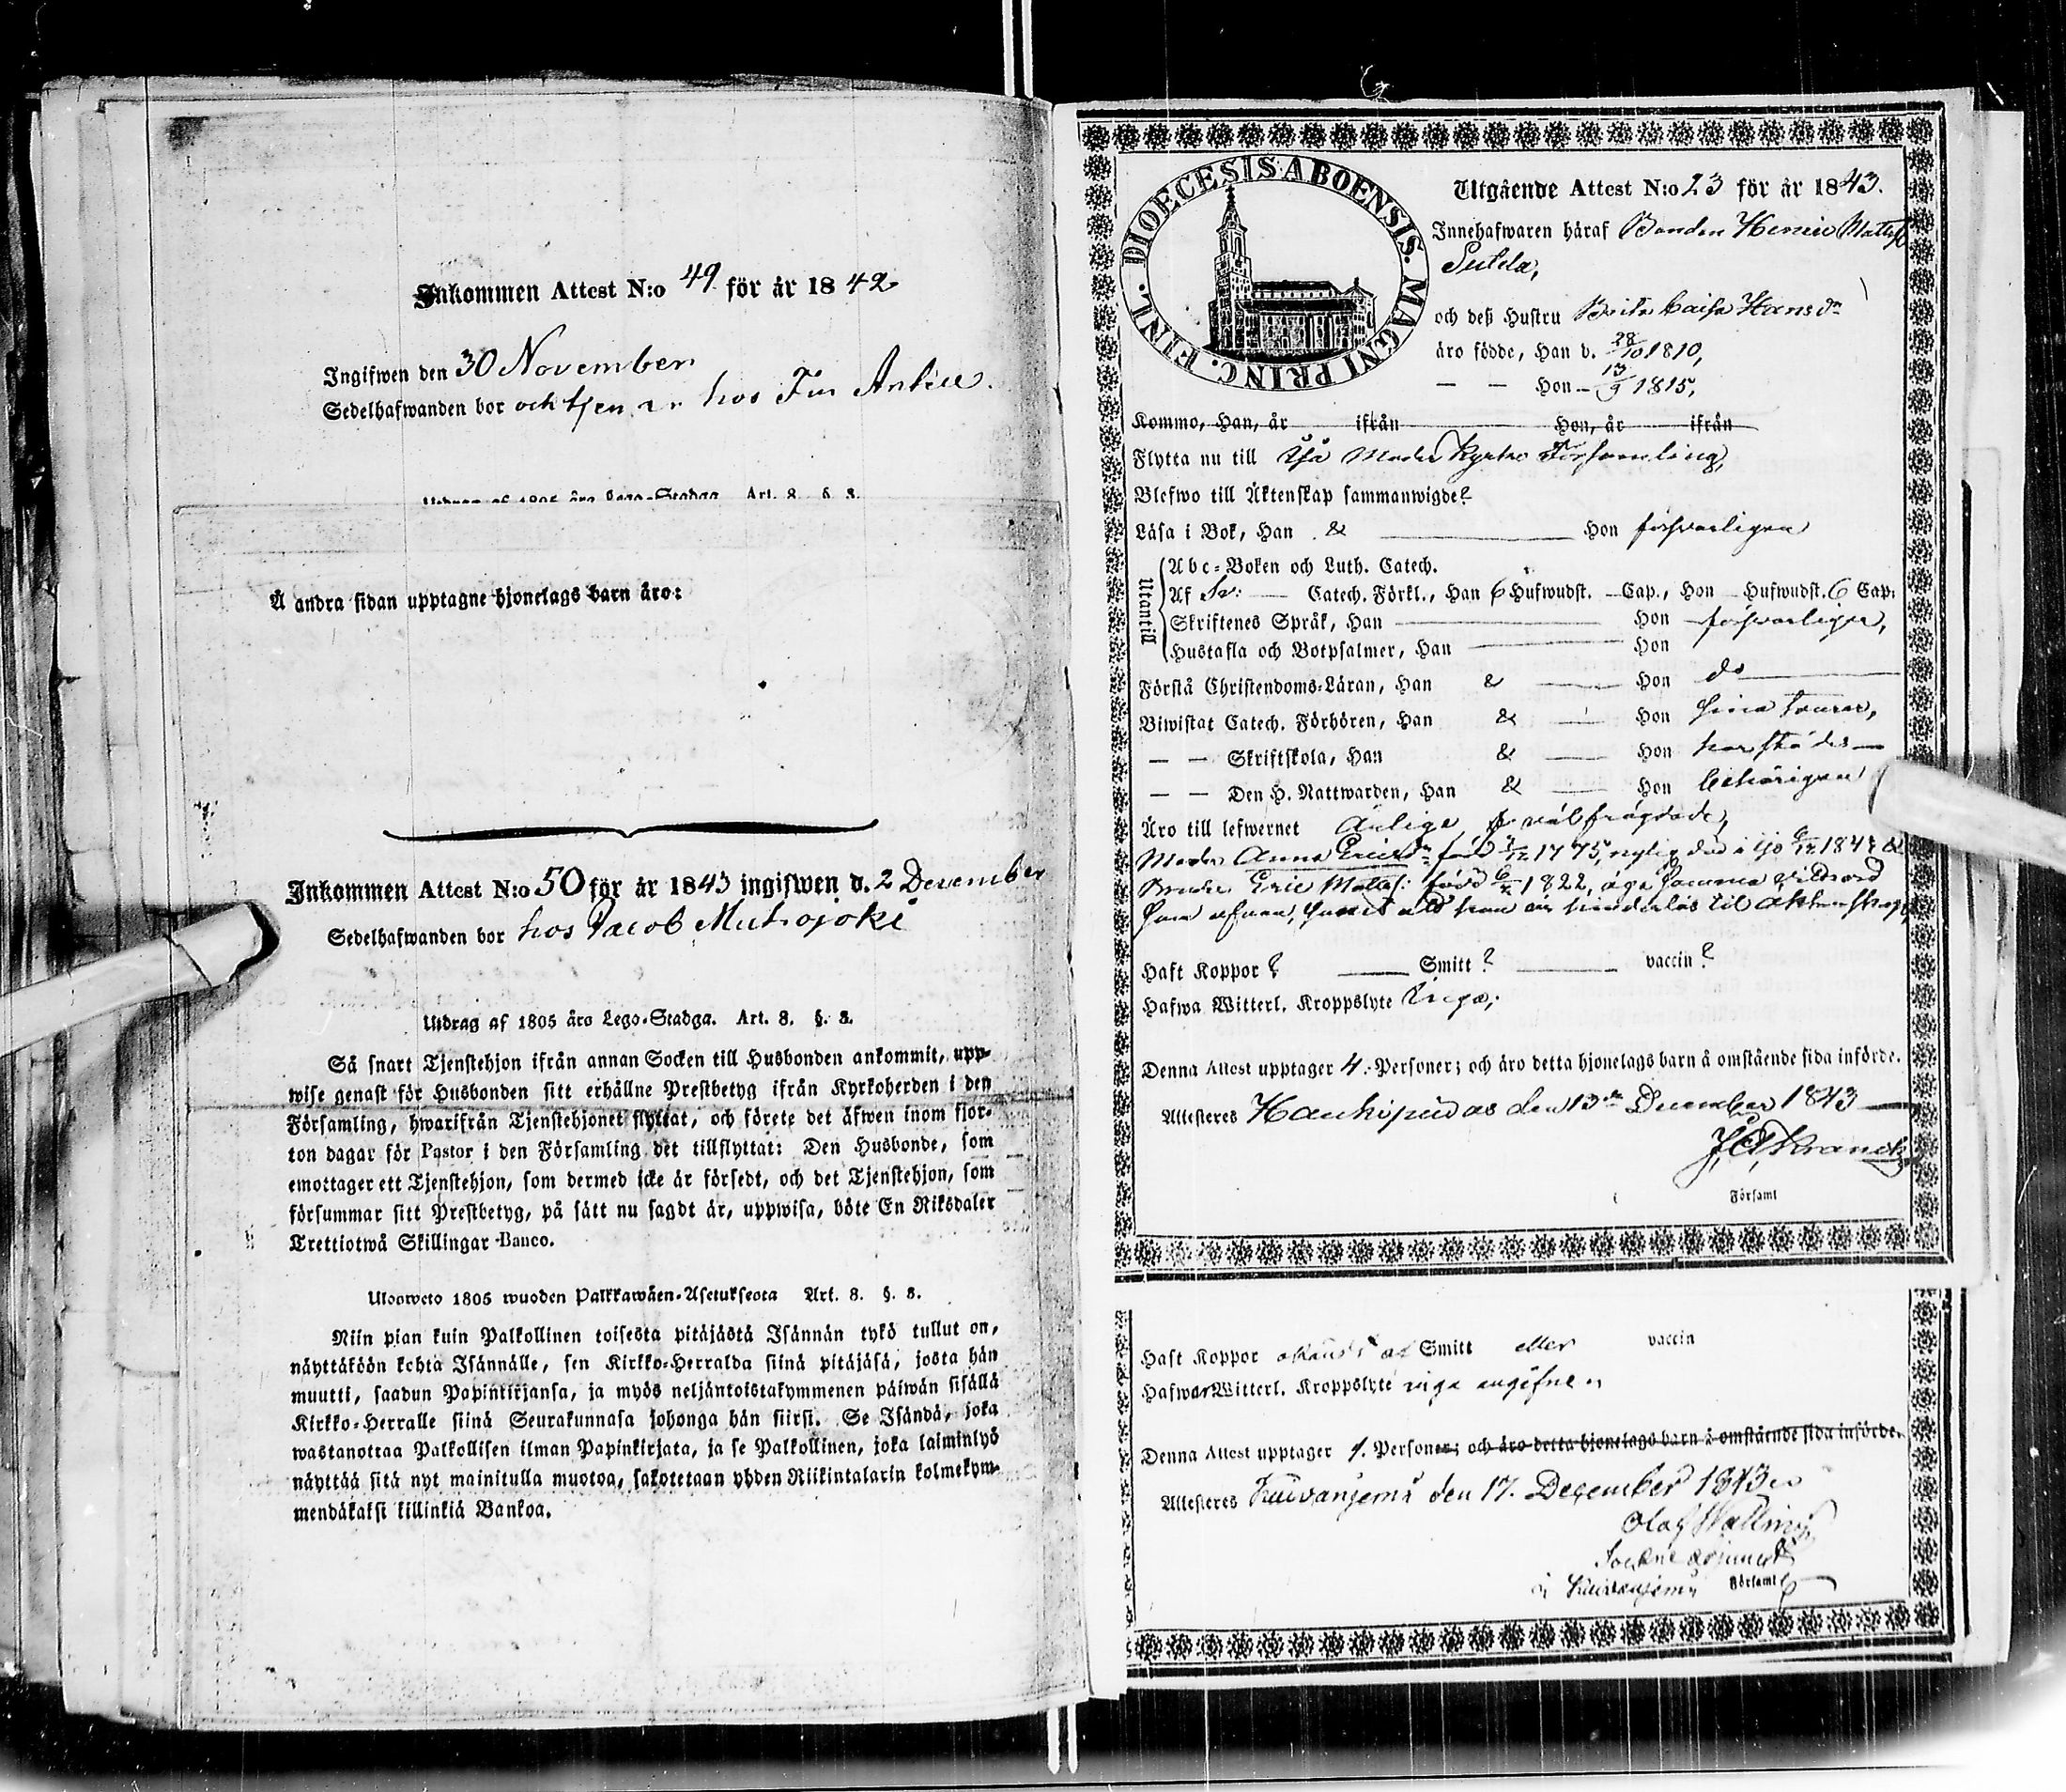 Inkommen Attest N:o 49 för år 1842
Ingifwen den 30 November
Sedelhafwanden bor och tjenar hos
Utdrag af 1805 års Lego-Stadga. Art. 8. §. 8.
Å andra sidan upptagne hjonelags barn äro:
Inkommen Attest N:o 50 för år 1843 ingifwen d. 2 December
Sedelhafwanden bor hos Jacob
Utdrag af 1805 års Lego-Stadga. Art. 8. §. 8.
Så snart Tjenstehjon ifrån annan Socken till Husbonden ankommit, upp-
wise genast för Husbonden sitt erhållne Prestbetyg ifrån Kyrkoherden i den
Församling, hwarifrån Tjenstehjonet flyttat, och förete det äfwen inom fjor-
ton dagar för Pastor i den Församling det tillflyttat: Den Husbonde, som
emottager ett Tjenstehjon, som dermed icke är försedt, och det Tjenstehjon, som
försummar sitt Prestbetyg, på sätt nu sagdt är, uppwisa, böte En Riksdaler
Trettiotwå Skillingar Banco.
Ulosweto 1805 wuoden Palkkawäen-Asetuksesta Art. 8. §. 8.
Niin pian kuin Palkollinen toisesta pitäjästä Isännän tykö tullut on,
näyttäköön kohta Isännälle, sen Kirkko-Herralda siinä pitäjäsä, josta hän
muutti, saadun Papinkirjansa, ja myös neljäntoistakymmenen päiwän sisällä
Kirkko-Herralle siinä Seurakunnasa johonga hän siirsi. Se Isändä, joka
wastanottaa Palkollisen ilman Papinkirjata, ja se Palkollinen, joka laiminlyö
näyttää sitä nyt mainitulla muotoa, sakotetaan yhden Riikintalarin kolmekym-
mendäkaksi killinkiä Bankoa.
DIOECESIS ABOENSIS. MAGNI PRINC. FINL.
Utgående Attest N:o 23 för år 1843.
Innehafwaren häraf Bonden Henric Mattss
och deß Hustru Brita Caisa Hansdr
äro födde, Han d. 28/10 1810,
— — Hon - 13/9 1815,
Kommo, Han, år ifrån Hon, år ifrån
Flytta nu till Ijå Moder Kyrko Församling,
Blefwo till Äktenskap sammanwigde?
Läsa i Bok, Han & Hon försvarligen
Utantill
Abc-Boken och Luth. Catech.
Af Sv: Catech. Förkl., Han 6 Hufwudst. — Cap., Hon — Hufwudst. 6 Cap.
Skriftenes Språk, Han Hon försvarligen,
Hustafla och Botpsalmer, Han Hon
Förstå Christendoms-Läran, Han & Hon do
Biwistat Catech. Förhören, Han & Hon
— — Skriftskola, Han & Hon
— — Den H. Nattwarden, Han & Hon behörigen
Äro till lefwernet ärlige & välfrägdade,
Moder Anna Ericsdr född 1775,
Broder Eric Mattss: född 1822, äga samma vitsord
som ofvan, äktenskap,
Haft Koppor ? Smitt ? vaccin ?
Hafwa Witterl. Kroppslyte Inga;
Denna Attest upptager 4. Personer; och äro detta hjonelags barn å omstående sida införde.
Attesteres Haukipudas den 13de December 1843
Församl
Haft Koppor Smitt eller vaccin
Hafwa Witterl. Kroppslyte inga angifne
Denna Attest upptager 1. Personer; och äro detta hjonelags barn å omstående sida införde.
Attesteres Kuivaniemi den 17. December 1843
Olof
i Kuivaniemi Församl